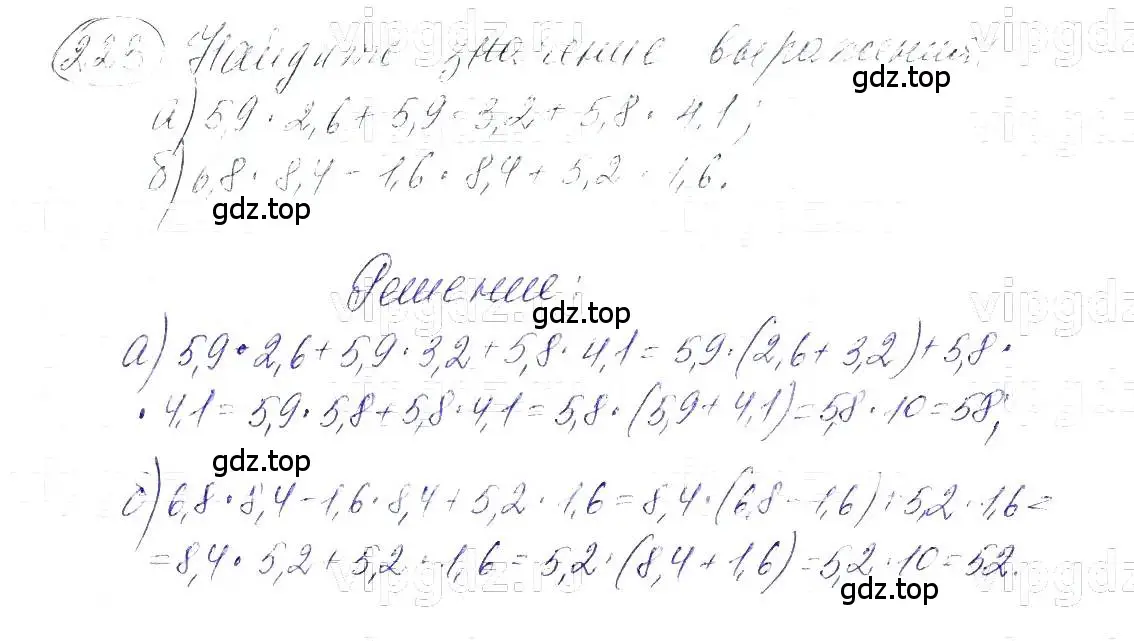 223 Найдите значение выражений
gdz.top
а) 5,9 · 2,6 + 5,9 · 3,2 + 5,8 · 4,1;
б) 6,8 · 8,4 - 1,6 · 8,4 + 5,2 · 1,6.
gdz.top
Решение:
gdz.top
а) 5,9 · 2,6 + 5,9 · 3,2 + 5,8 · 4,1 = 5,9 · (2,6 + 3,2) + 5,8 ·
· 4,1 = 5,9 · 5,8 + 5,8 · 4,1 = 5,8 · (5,9 + 4,1) = 5,8 · 10 = 58;
gdz.top
б) 6,8 · 8,4 - 1,6 · 8,4 + 5,2 · 1,6 = 8,4 · (6,8 - 1,6) + 5,2 · 1,6 =
= 8,4 · 5,2 + 5,2 · 1,6 = 5,2 · (8,4 + 1,6) = 5,2 · 10 = 52.
gdz.top